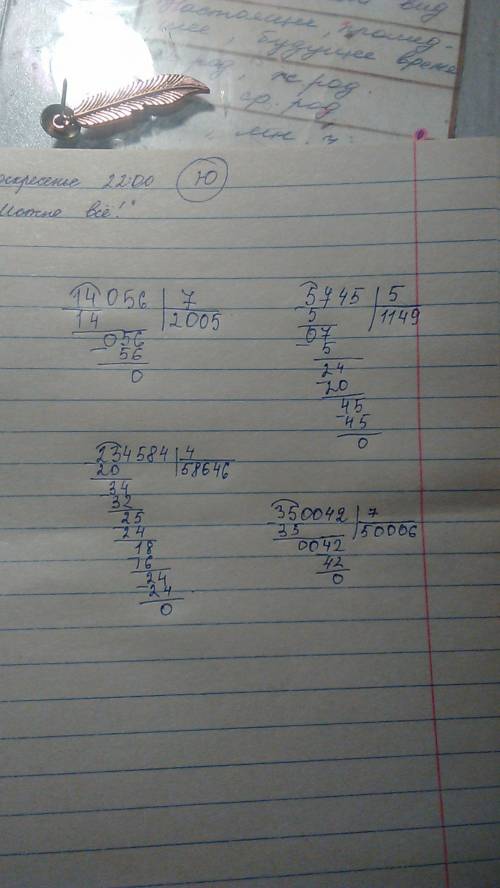 вид
Настоящее, прошед-
шее, будущее время
род, ж род.
ср. род
мн. ч.
оскресение 22:00 Ю
Можно всё!"
14056 7
14 2005
056
56
0
5745 5
5 1149
07
5
24
20
45
45
0
234584 4
20 58646
34
32
25
24
18
16
24
24
0
350042 7
35 50006
0042
42
0